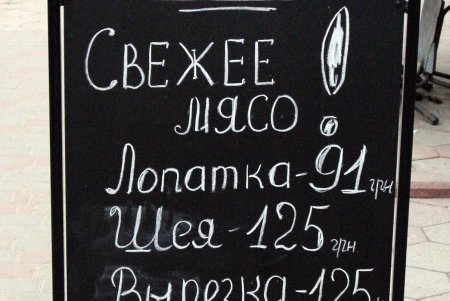 СВЕЖЕЕ !
МЯСО
Лопатка-91 грн.
Шея-125 грн.
Вырезка-125